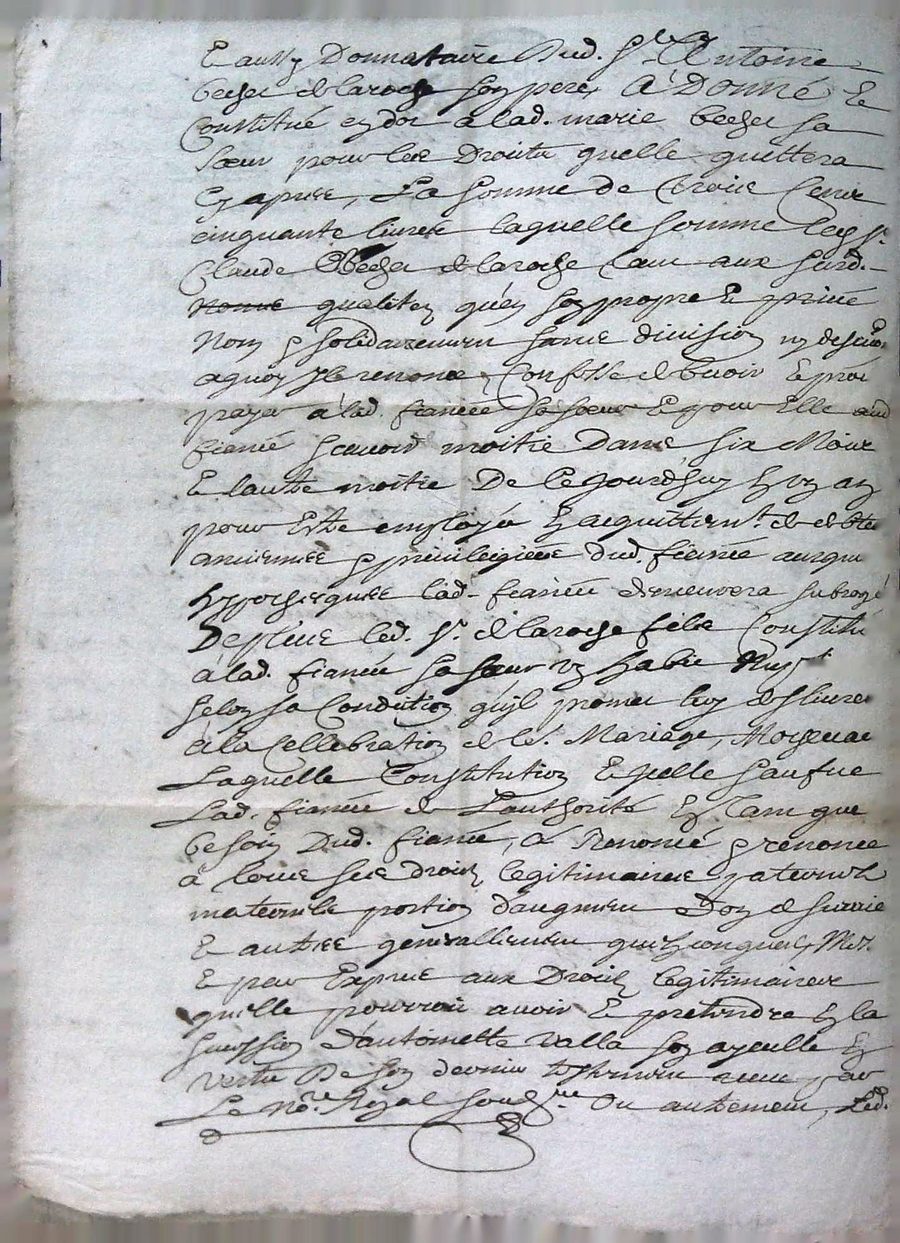 Et aussy Donnataire Dud. Sr. Antoine
becher de laroche son pere, A Donné Et
Constitué en dot a lad. marie becher sa
sœur pour les Droits quelle quittera
Cy apres, La somme de Trois Cent
cinquante livres laquelle somme led. Sr.
Claude becher de laroche tant aux susd.
qualites qu'en son propre Et privé
Nom & solidairement sans division ny discution
aquoy Il renonce, Confesse debvoir Et pro
payer a lad. fiancée sa sœur Et pour Elle aud
fiancé scavoir moitié Dans six Mois
Et lautre moitié De Ce Jourdhuy En un an
pour Estre employée En acquittemt. de debtes
anciennes & privilegiées dud. fiancé auxqu
hypotheques lad. fiancée demeurera subrogé
De plus led. Sr. de laroche fils Constitue
a lad. fiancée sa sœur un habit Nupt.
selon sa Condition quil promet luy deslivrer
a la Cellebration de le. Mariage, Moyenant
Laquelle Constitution Icelle
Lad. fiancée de Lauthorité En tant que
besoin Dud. fiancé, a Renoncé & renonce
a tous ses droits legitimaires paternels
maternels portion d'augment Don de survie
Et autres generallement quelconques,
Et par Exprés aux Droits legitimaires
quelle pourroit avoir Et pretendre En la
succession d'antoinette valla son ayeulle En
vertu De son dernier testament receu par
Le nore. Royal soubne. Ou autrement, Led.